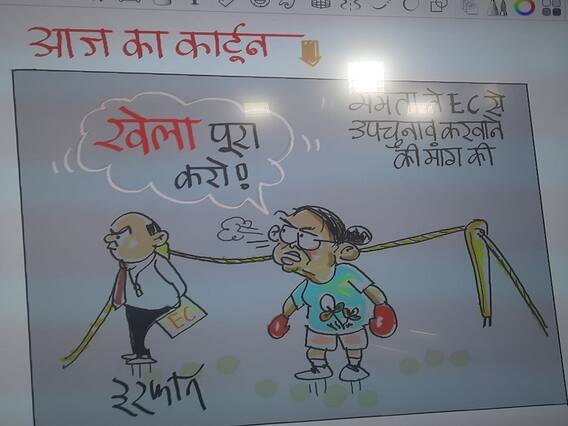 आज का कार्टून
ममता ने EC से
उपचुनाव करवाने
की मांग की
खेला पूरा
करो!
EC
इरफान